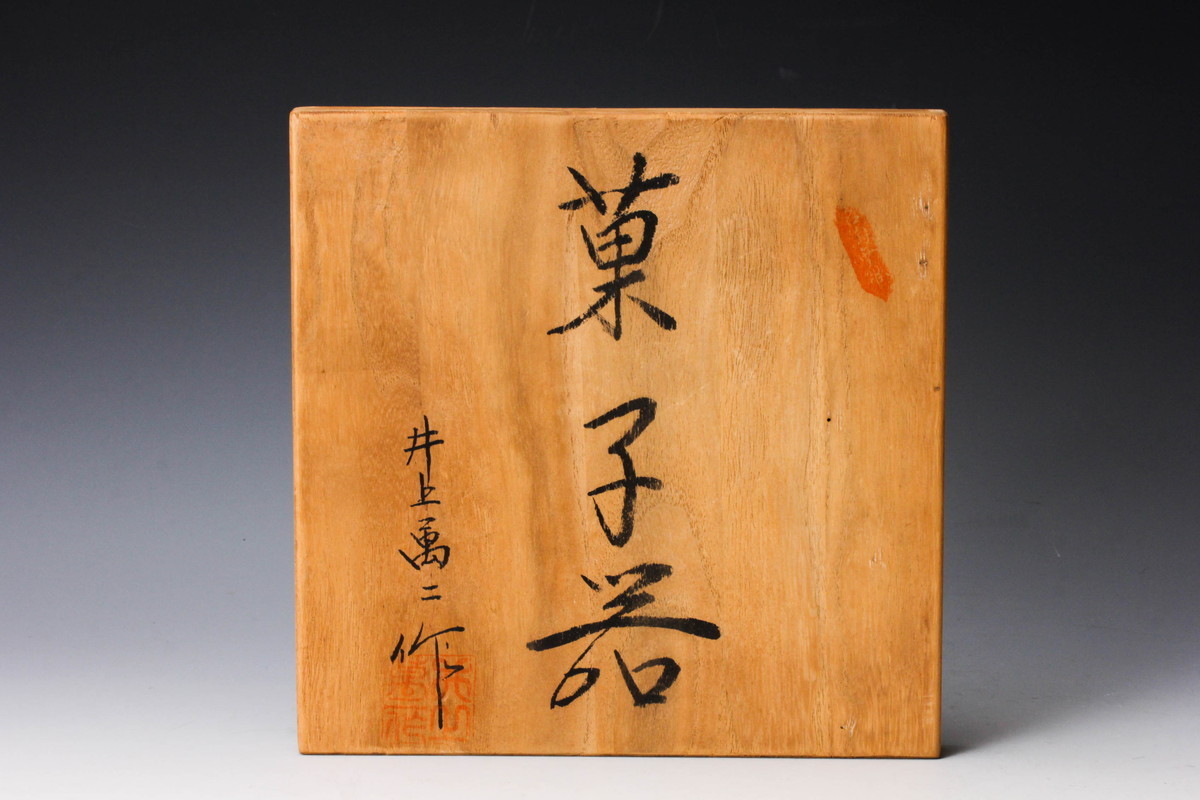 菓子器
井上萬二作